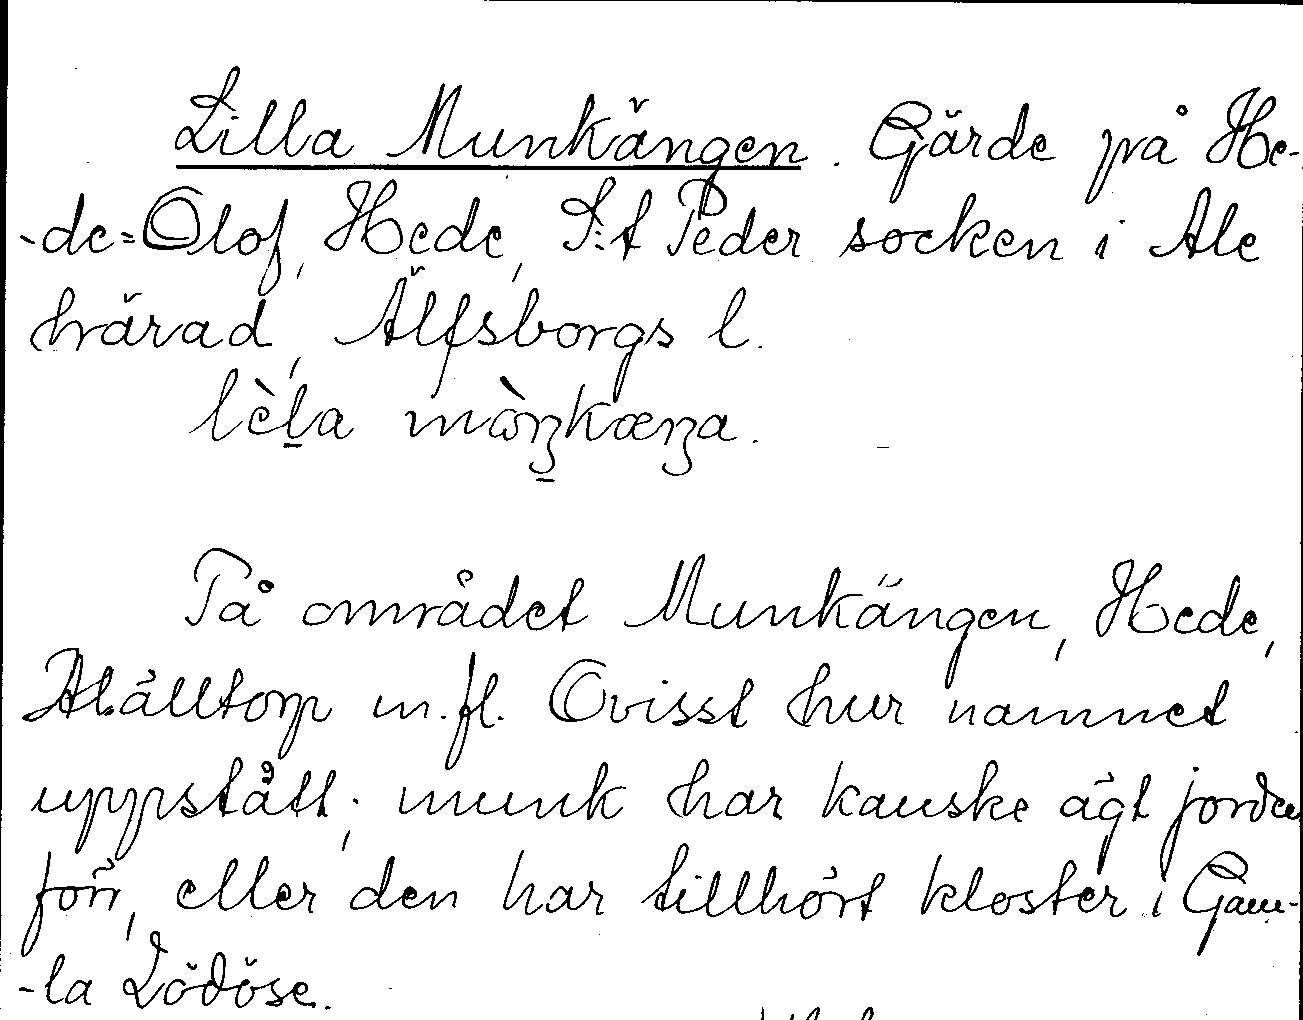 Lilla Munkängen. Gärde på He-
-de=Olof, Hede, S:t Peder socken i Ale
härad, Älfsborgs l.
lèl̠a mòŋ̠kæŋa.
På området Munkängen, Hede,
Håltorp m.fl. Ovisst hur namnet
uppstått; munk har kanske ägt jorden
förr, eller den har tillhört kloster i Gam-
-la Lödöse.